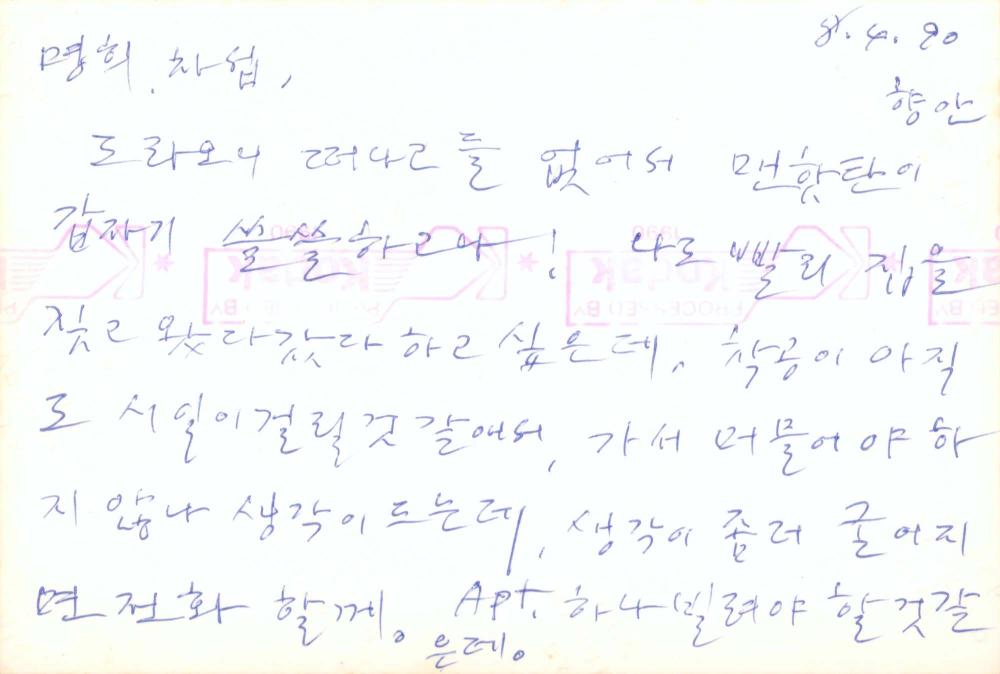 8. 4. 90
명희, 차섭,
향안
도라오니 떠나고들 없어서 맨핫탄이
갑자기 쓸쓸하고나! 나도 빨리 집을
짓고 왔다갔다 하고 싶은데, 착공이 아직
도 시일이 걸릴것 같애서, 가서 머물어야 하
지 않나 생각이 드는데, 생각이 좀더 굴어지
면 전화 할께. Apt. 하나 빌려야 할것같
은데.
1990
Kodak
PROCESSED BY